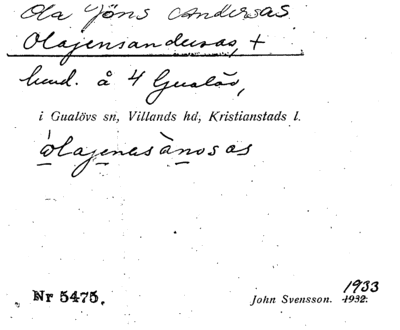 Ola Jöns Andersas
Olajensandersas, +
hmd. å 4 Gualöv,
i Gualövs sn, Villands hd, Kristianstads l.
olajensànosas
1933
Nr 5475. John Svensson. 1932.